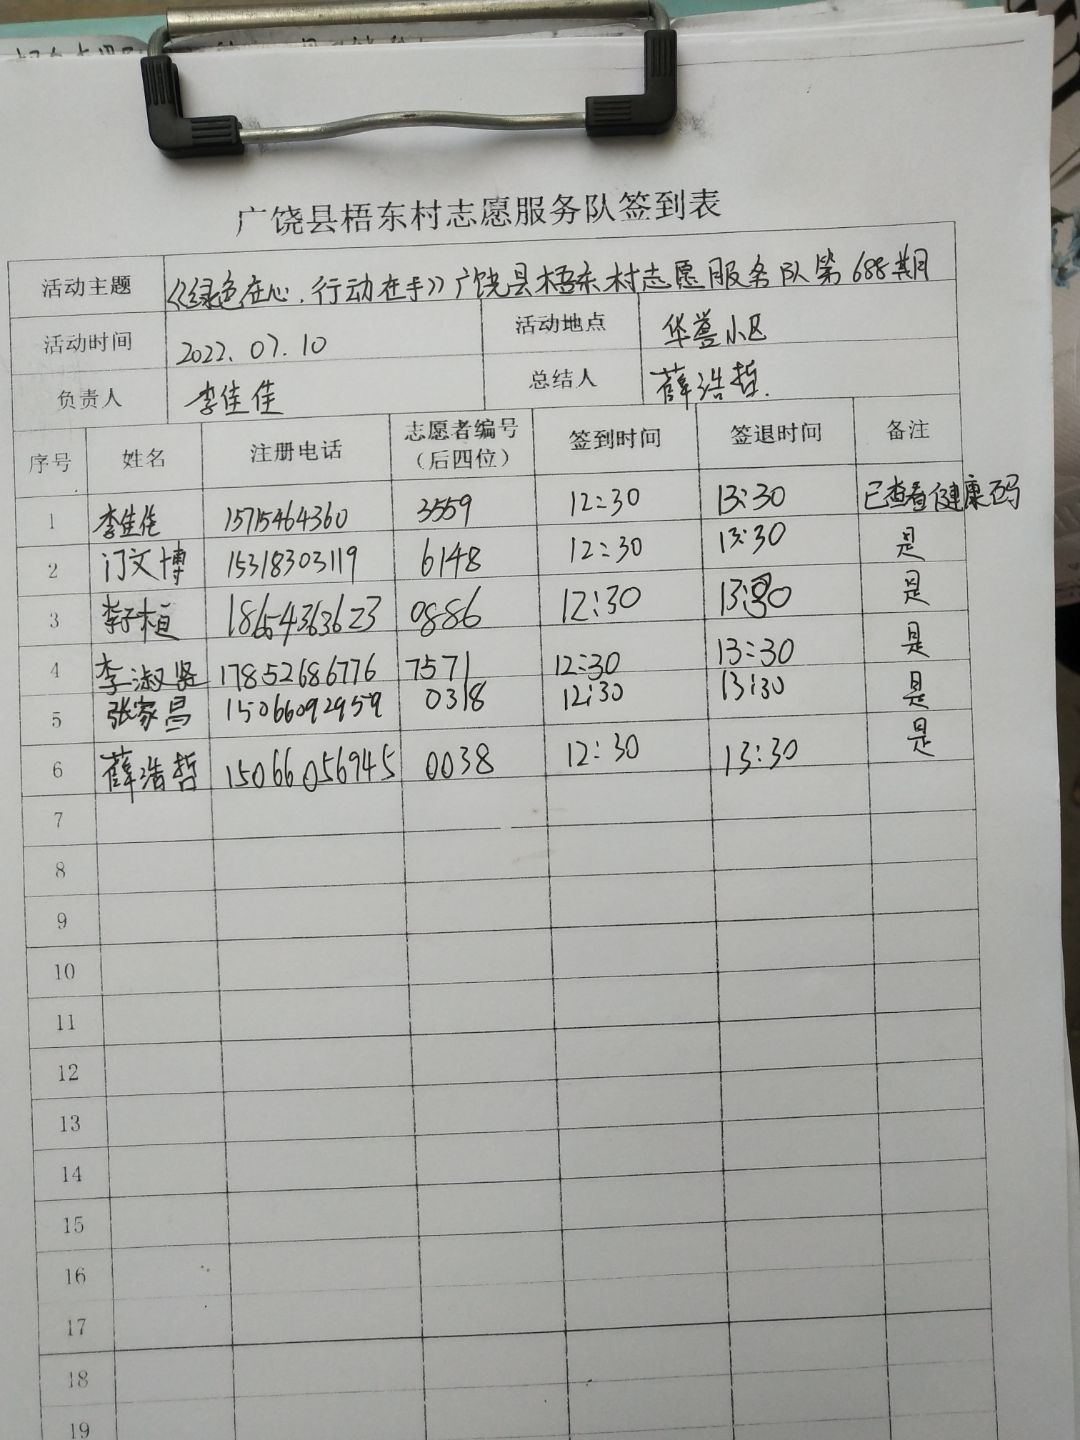 广饶县梧东村志愿服务队签到表
活动主题 《绿色在心.行动在手》广饶县梧东村志愿服务队第688期
活动时间 2022.07.10 活动地点 华誉小区
负责人 李佳佳 总结人 薛浩哲.
序号 姓名 注册电话 志愿者编号（后四位） 签到时间 签退时间 备注
1 李佳佳 15715464360 3559 12:30 13:30 已查看健康码
2 门文博 15318303119 6148 12:30 13:30 是
3 李子桓 18654363623 0886 12:30 13:30 是
4 李淑贤 17852686776 7571 12:30 13:30 是
5 张家昌 15066092959 0318 12:30 13:30 是
6 薛浩哲 15066056945 0038 12:30 13:30 是
7
8
9
10
11
12
13
14
15
16
17
18
19